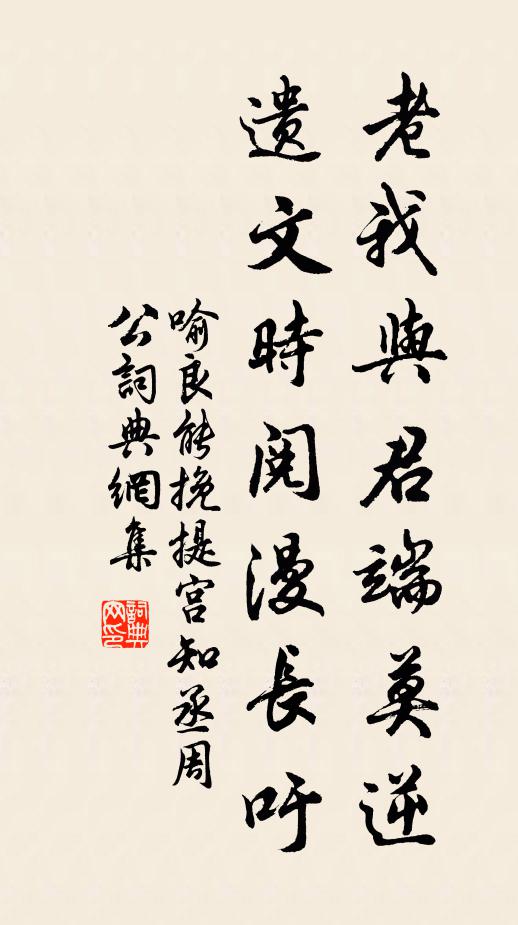 老我與君端莫逆
遺文時閱漫長吁
喻良能挽提宮知丞周
公詞典網集
詞典网印